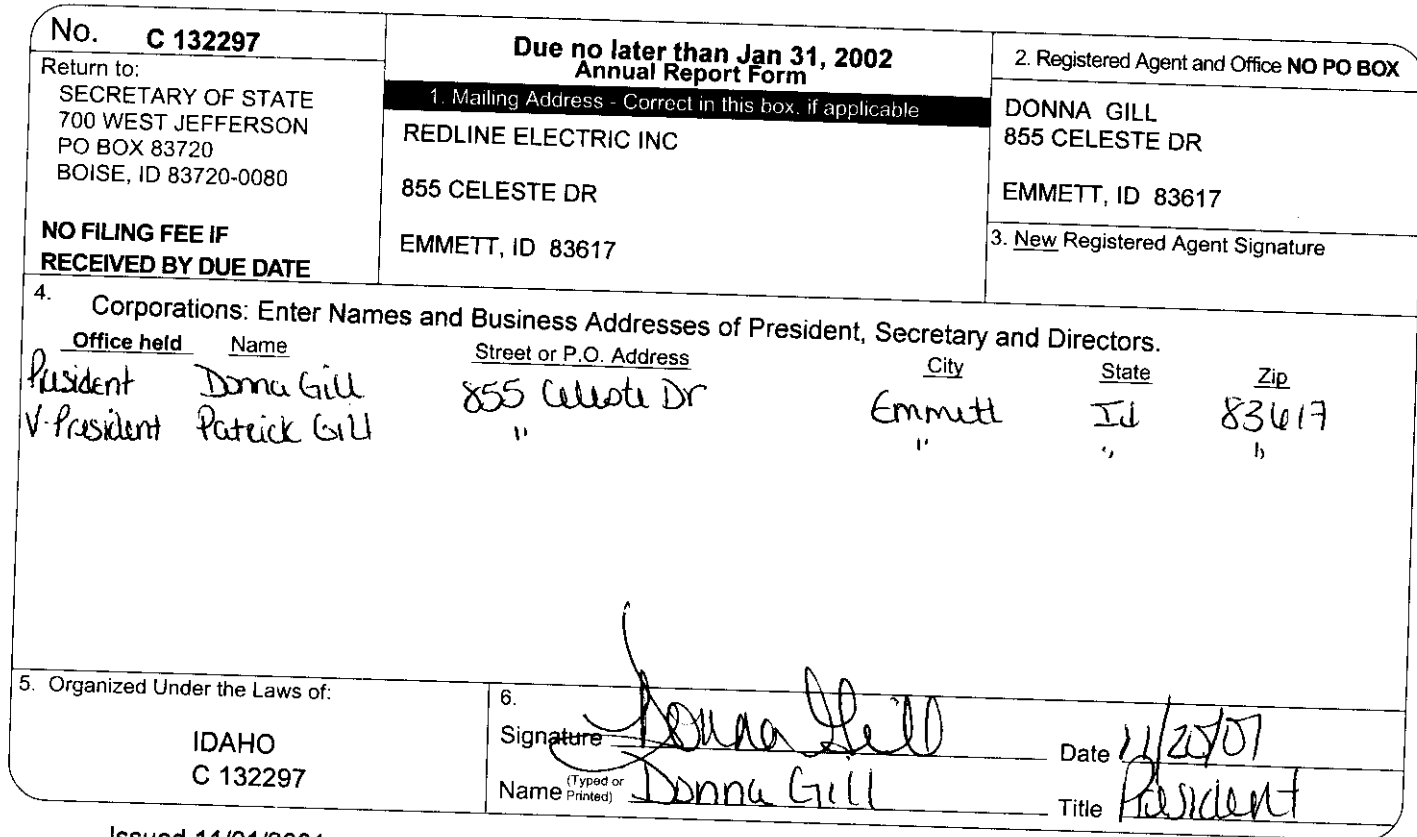 No. C 132297
Return to:
SECRETARY OF STATE
700 WEST JEFFERSON
PO BOX 83720
BOISE, ID 83720-0080
NO FILING FEE IF
RECEIVED BY DUE DATE
Due no later than Jan 31, 2002
Annual Report Form
1. Mailing Address - Correct in this box, if applicable
REDLINE ELECTRIC INC
855 CELESTE DR
EMMETT, ID 83617
2. Registered Agent and Office NO PO BOX
DONNA GILL
855 CELESTE DR
EMMETT, ID 83617
3. New Registered Agent Signature
4. Corporations: Enter Names and Business Addresses of President, Secretary and Directors.
Office held Name Street or P.O. Address City State Zip
President Donna Gill 855 Celeste Dr Emmett Id 83617
V-President Patrick Gill " " " "
5. Organized Under the Laws of:
IDAHO
C 132297
6.
Signature Donna Gill Date 11/20/01
Name (Typed or Printed) Donna Gill Title President
Issued 11/01/2001